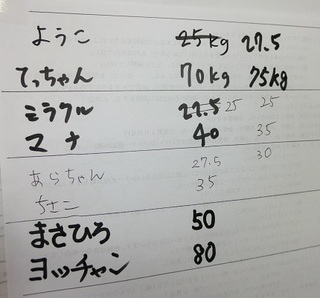 ようこ 25kg 27.5
てっちゃん 70kg 75kg
ミラクル 27.5 25 25
マナ 40 35
あらちゃん 27.5 30
ちさこ 35
まさひろ 50
ヨッチャン 80